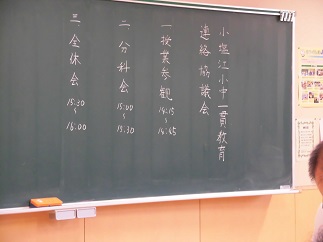 小塩江小中一貫教育
連絡協議会
一 授業参観 14:15~14:45
二 分科会 15:00~15:30
三 全体会 15:30~16:00